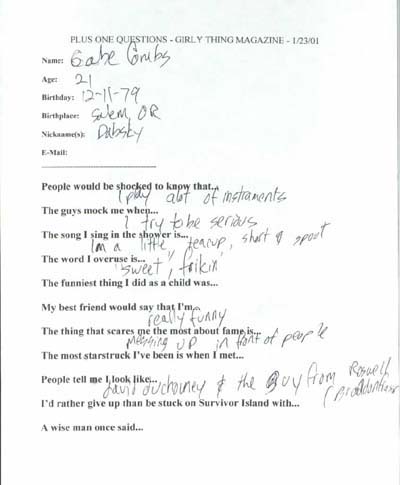 PLUS ONE QUESTIONS - GIRLY THING MAGAZINE - 1/23/01
Name: Gabe Combs
Age: 21
Birthday: 12-11-79
Birthplace: Salem, OR
Nickname(s): Dabsky
E-Mail:
People would be shocked to know that...
I play alot of instraments
The guys mock me when...
I try to be serious
The song I sing in the shower is...
Im a little teacup, short & spout
The word I overuse is...
"sweet", frikin'
The funniest thing I did as a child was...
My best friend would say that I'm...
really funny
The thing that scares me the most about fame is...
messing up in front of people
The most starstruck I've been is when I met...
People tell me I look like...
david duchovney & the guy from Roswell
I'd rather give up than be stuck on Survivor Island with...
A wise man once said...